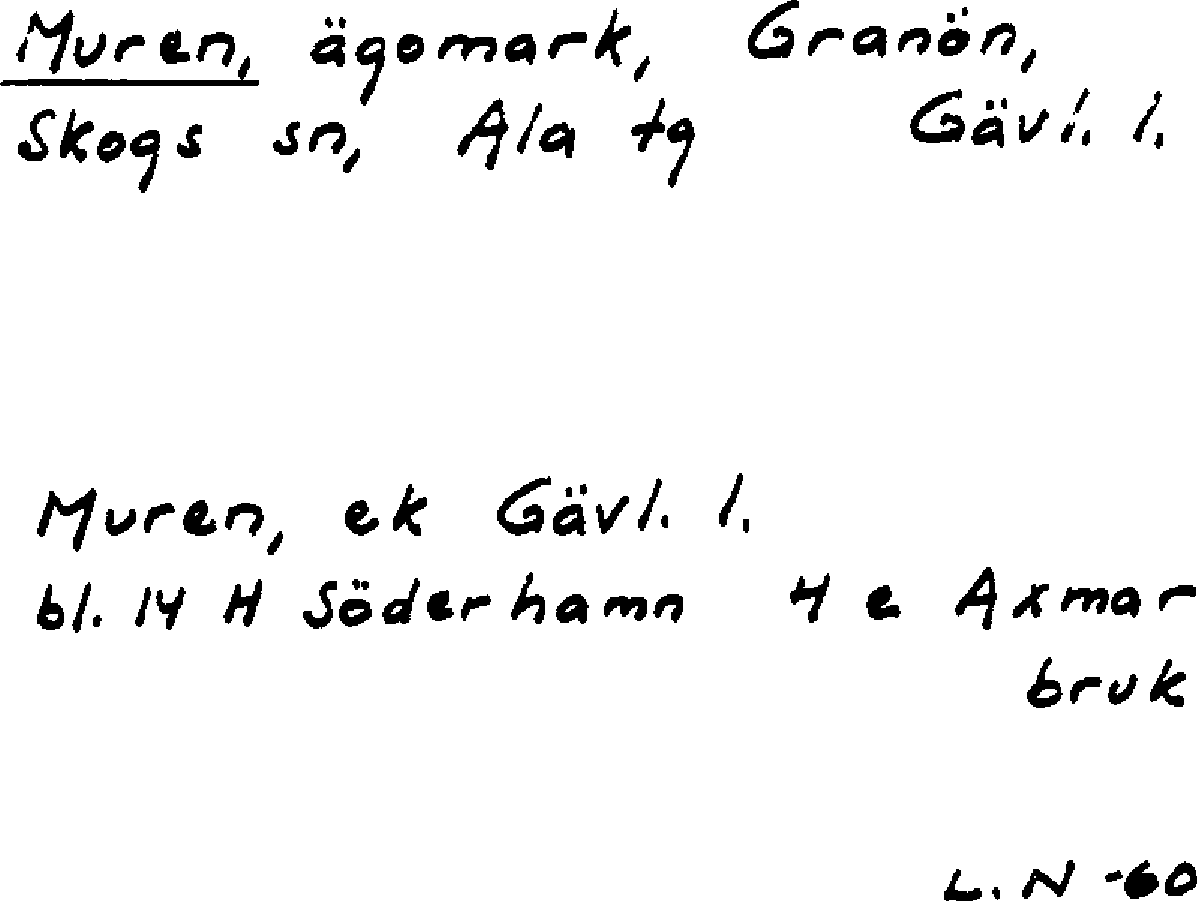 Muren, ägomark, Granön,
Skogs sn, Ala tg Gävl. l.
Muren, ek Gävl. l.
bl. 14 H Söderhamn 4 e Axmar
bruk
L. N -60